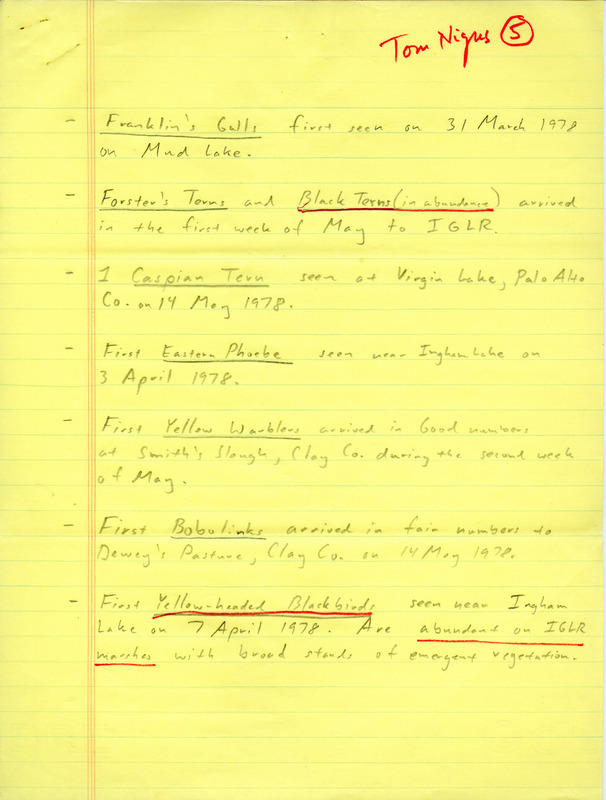 Tom Nigus 5
- Franklin's Gulls first seen on 31 March 1978
on Mud Lake.
- Forster's Terns and Black Terns (in abundance) arrived
in the first week of May to IGLR.
- 1 Caspian Tern seen at Virgin Lake, Palo Alto
Co. on 14 May 1978.
- First Eastern Phoebe seen near Ingham Lake on
3 April 1978.
- First Yellow Warblers arrived in Good numbers
at Smith's Slough, Clay Co. during the second week
of May.
- First Bobolinks arrived in fair numbers to
Dewey's Pasture, Clay Co. on 14 May 1978.
- First Yellow-headed Blackbirds seen near Ingham
Lake on 7 April 1978. Are abundant on IGLR
marshes with broad stands of emergent vegetation.